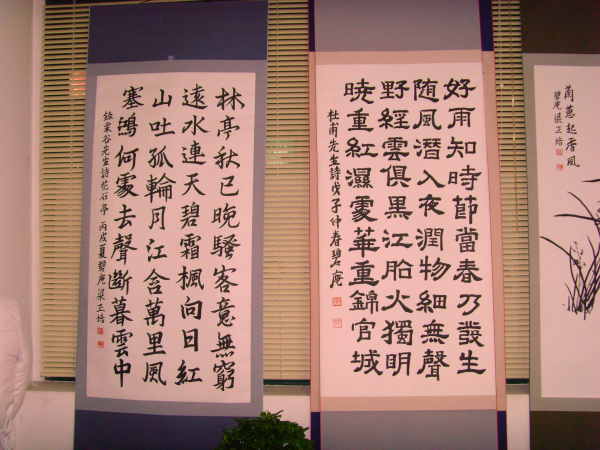 林亭秋已晚騷客意無窮
遠水連天碧霜楓向日紅
山吐孤輪月江含萬里風
塞鴻何處去聲斷暮雲中
錄栗谷先生詩花石亭 丙戌夏碧庵梁正培
好雨知時節當春乃發生
随風潛入夜潤物細無聲
野經雲俱黑江船火獨明
曉重紅濕處華重錦官城
杜甫先生詩戊子仲春碧庵
蘭蕙起香風
碧庵梁正培